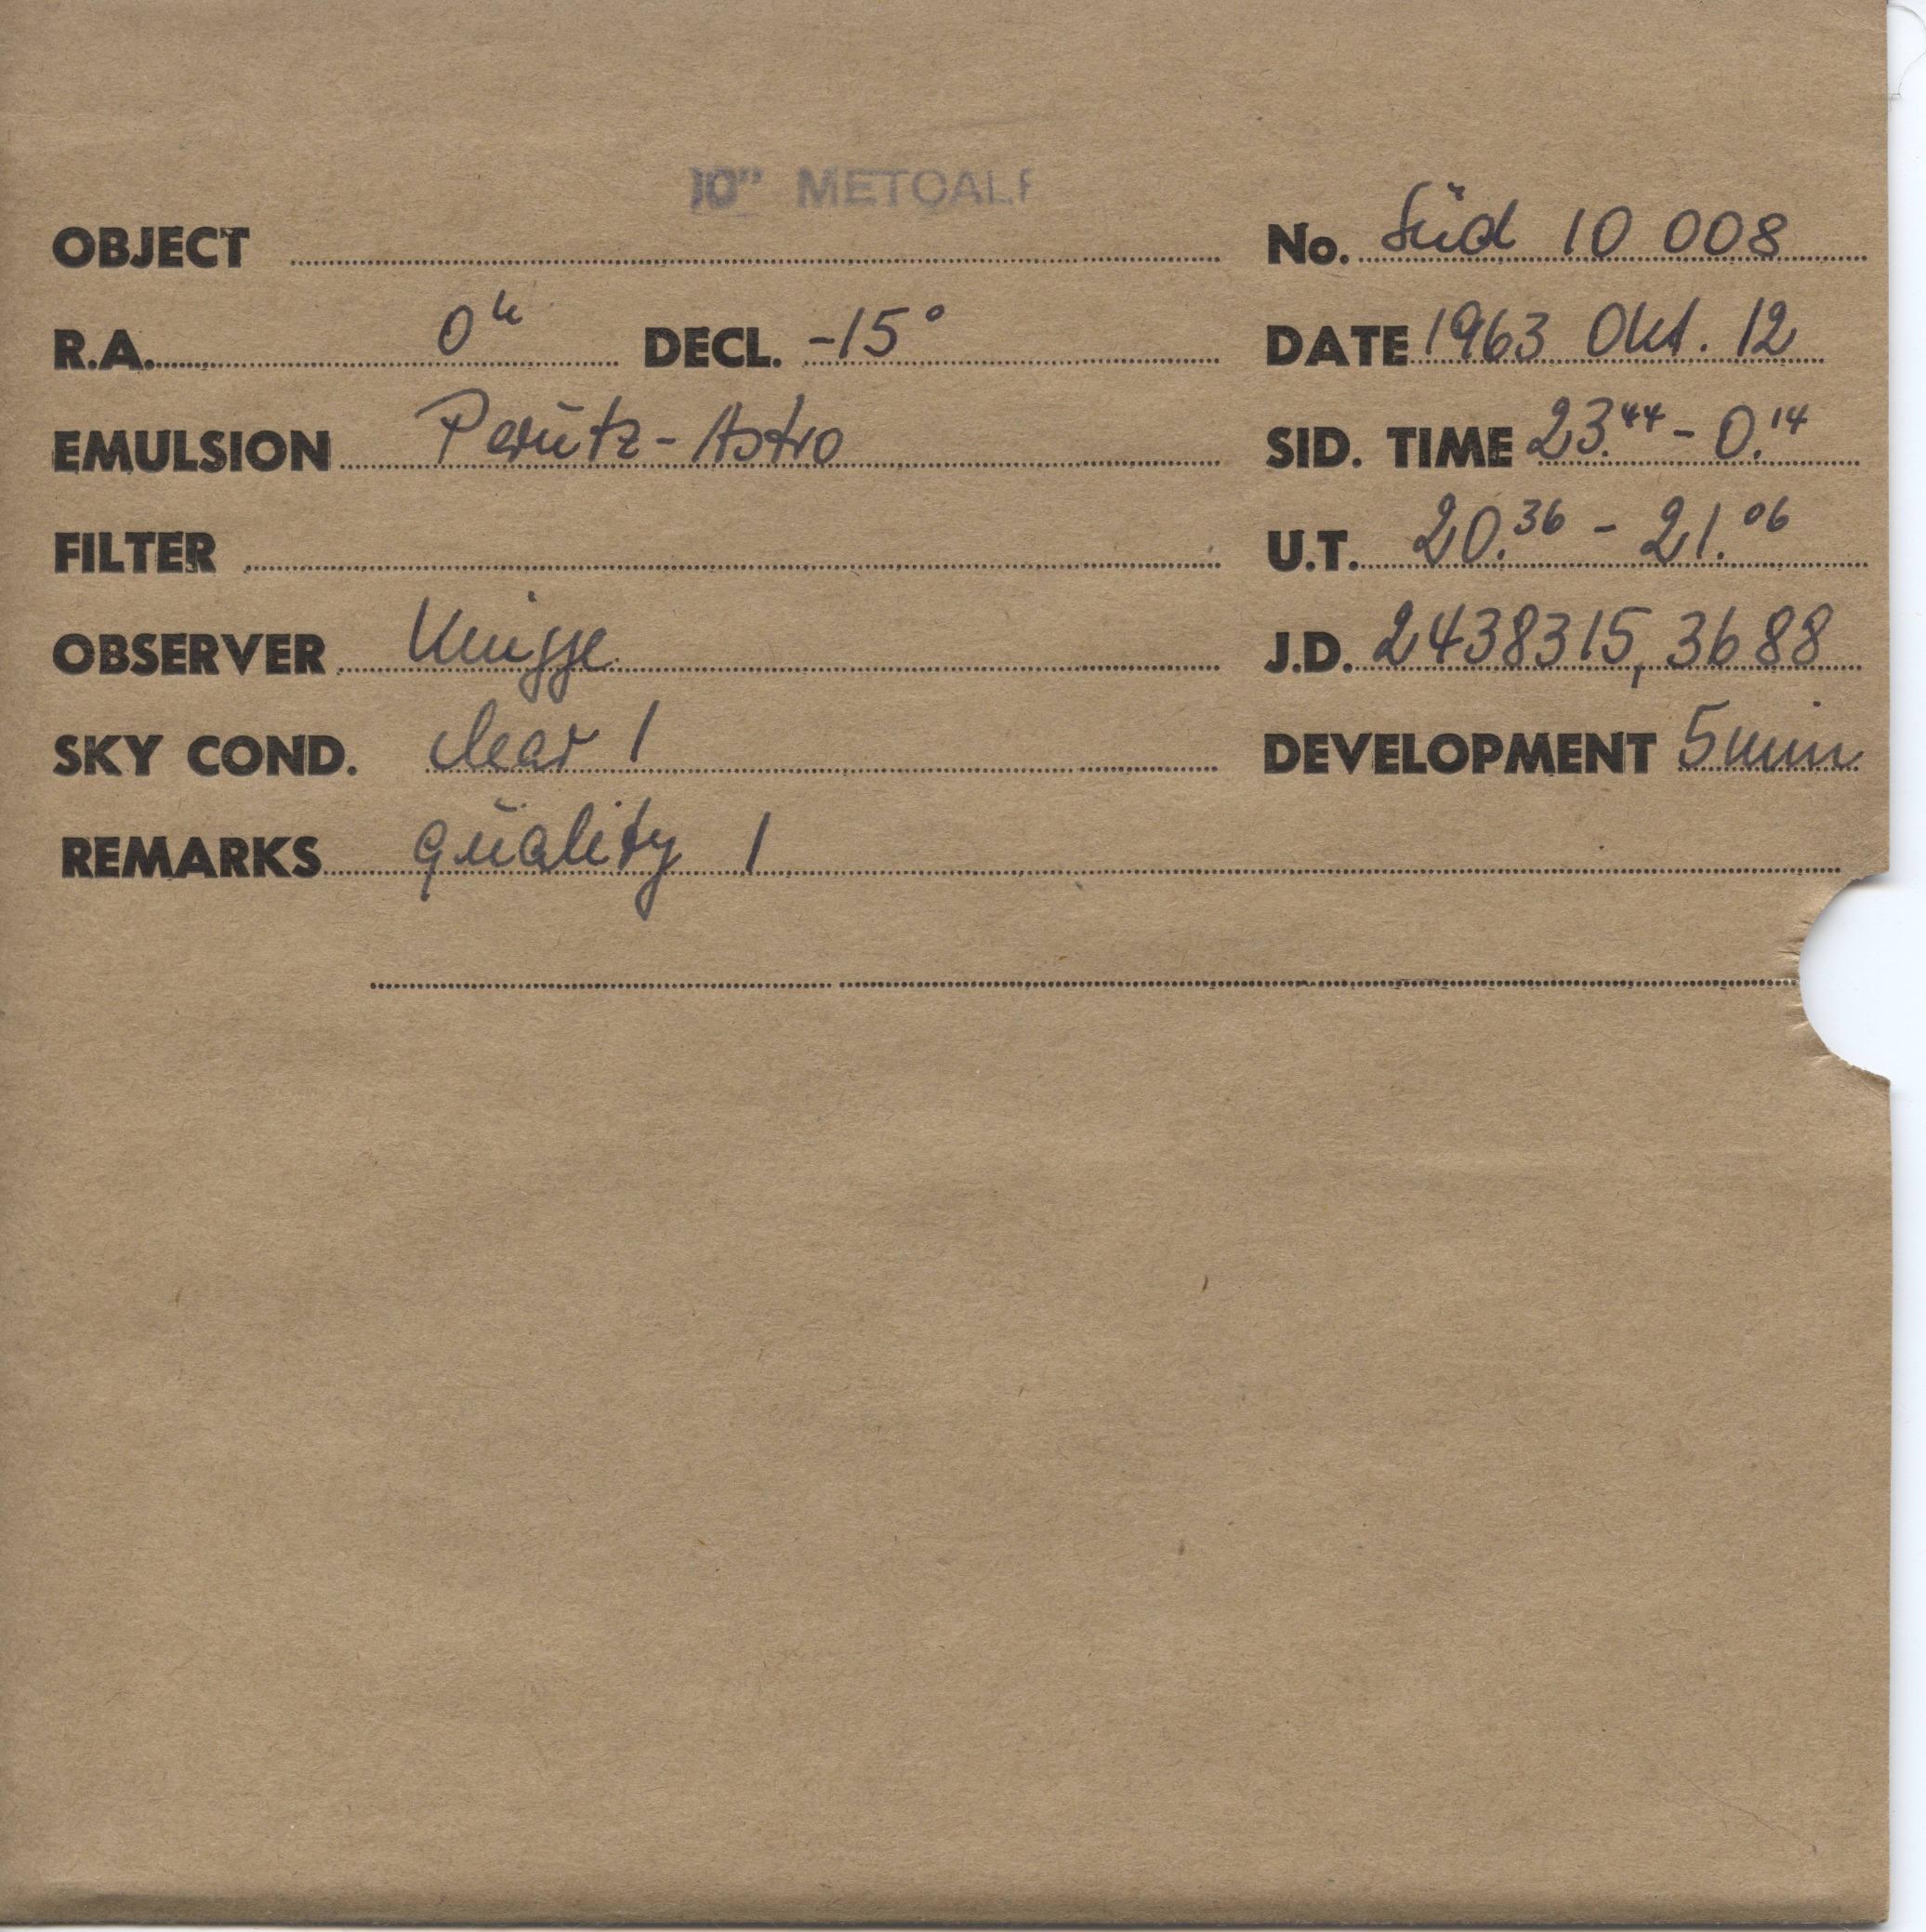 10" METCALF
OBJECT No. Süd 10 008
R.A. 0h DECL. -15° DATE 1963 Okt. 12
EMULSION Perutz-Astro SID. TIME 23.44 - 0.14
FILTER U.T. 20.36 - 21.06
OBSERVER Knigge J.D. 2438315,3688
SKY COND. clear 1 DEVELOPMENT 5 min
REMARKS quality 1